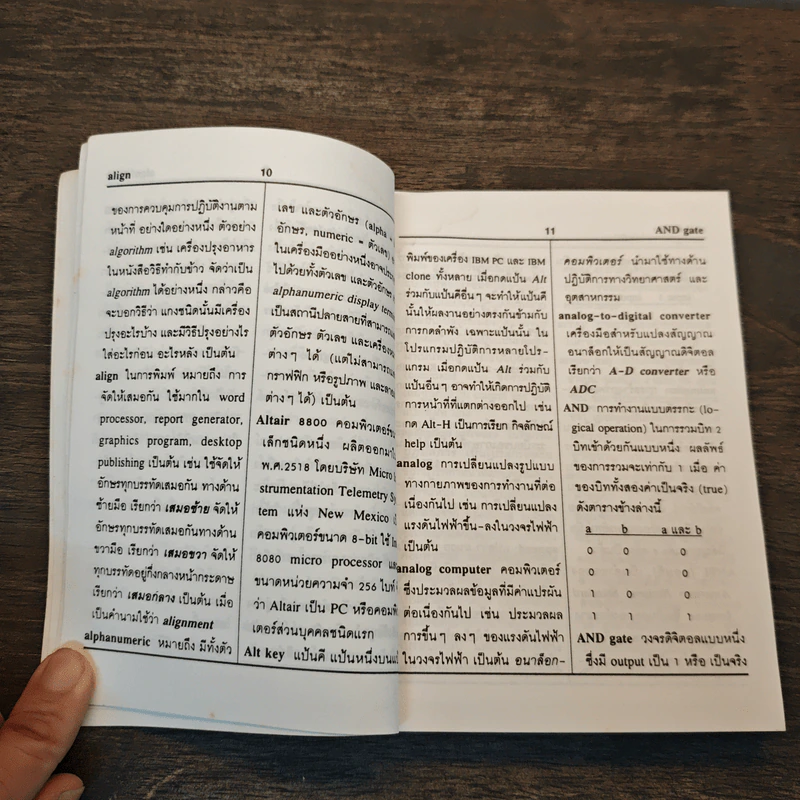 align 10
ของการควบคุมการปฏิบัติงานตาม
หน้าที่ อย่างใดอย่างหนึ่ง ตัวอย่าง
algorithm เช่น เครื่องปรุงอาหาร
ในหนังสือวิธีทำกับข้าว จัดว่าเป็น
algorithm ได้อย่างหนึ่ง กล่าวคือ
จะบอกวิธีว่า แกงชนิดนั้นมีเครื่อง
ปรุงอะไรบ้าง และมีวิธีปรุงอย่างไร
ใส่อะไรก่อน อะไรหลัง เป็นต้น
align ในการพิมพ์ หมายถึง การ
จัดให้เสมอกัน ใช้มากใน word
processor, report generator,
graphics program, desktop
publishing เป็นต้น เช่น ใช้จัดให้
อักษรทุกบรรทัดเสมอกัน ทางด้าน
ซ้ายมือ เรียกว่า เสมอซ้าย จัดให้
อักษรทุกบรรทัดเสมอกันทางด้าน
ขวามือ เรียกว่า เสมอขวา จัดให้
ทุกบรรทัดอยู่กึ่งกลางหน้ากระดาษ
เรียกว่า เสมอกลาง เป็นต้น เมื่อ
เป็นคำนามใช้ว่า alignment
alphanumeric หมายถึง มีทั้งตัว
เลข และตัวอักษร (alpha =
อักษร, numeric = ตัวเลข)
ในเครื่องมืออย่างหนึ่งอาจ
ไปด้วยทั้งตัวเลข และตัวอักษร
alphanumeric display
เป็นสถานีปลายสายที่สามารถ
ตัวอักษร ตัวเลข และเครื่อง
ต่างๆ ได้ (แต่ไม่สามารถ
กราฟฟิก หรือรูปภาพ และ
ต่างๆ ได้) เป็นต้น
Altair 8800 คอมพิวเตอร์
เล็กชนิดหนึ่ง ผลิตออกมา
พ.ศ.2518 โดยบริษัท Micro
strumentation Telemetry
tem แห่ง New Mexico
คอมพิวเตอร์ขนาด 8-bit ใช้
8080 micro processor
ขนาดหน่วยความจำ 256 ไบท์
ว่า Altair เป็น PC หรือคอมพิ
เตอร์ส่วนบุคคลชนิดแรก
Alt key แป้นคี แป้นหนึ่งบน
11 AND gate
พิมพ์ของเครื่อง IBM PC และ IBM
clone ทั้งหลาย เมื่อกดแป้น Alt
ร่วมกับแป้นคีอื่นๆ จะทำให้แป้นคี
นั้นให้ผลงานอย่างตรงกันข้ามกับ
การกดลำพัง เฉพาะแป้นนั้น ใน
โปรแกรมปฏิบัติการหลายโปร-
แกรม เมื่อกดแป้น Alt ร่วมกับ
แป้นอื่นๆ อาจทำให้เกิดการปฏิบัติ
การหน้าที่ที่แตกต่างออกไป เช่น
กด Alt-H เป็นการเรียก กิจลักษณ์
help เป็นต้น
analog การเปลี่ยนแปลงรูปแบบ
ทางกายภาพของการทำงานที่ต่อ
เนื่องกันไป เช่น การเปลี่ยนแปลง
แรงดันไฟฟ้าขึ้น-ลงในวงจรไฟฟ้า
เป็นต้น
analog computer คอมพิวเตอร์
ซึ่งประมวลผลข้อมูลที่มีค่าแปรผัน
ต่อเนื่องกันไป เช่น ประมวลผล
การขึ้นๆ ลงๆ ของแรงดันไฟฟ้า
ในวงจรไฟฟ้า เป็นต้น อนาล็อก-
คอมพิวเตอร์ นำมาใช้ทางด้าน
ปฏิบัติการทางวิทยาศาสตร์ และ
อุตสาหกรรม
analog-to-digital converter
เครื่องมือสำหรับแปลงสัญญาณ
อนาล็อกให้เป็นสัญญาณดิจิตอล
เรียกว่า A-D converter หรือ
ADC
AND การทำงานแบบตรรกะ (lo-
gical operation) ในการรวมบิท 2
บิทเข้าด้วยกันแบบหนึ่ง ผลลัพธ์
ของการรวมจะเท่ากับ 1 เมื่อ ค่า
ของบิททั้งสองค่าเป็นจริง (true)
ดังตารางข้างล่างนี้
a b a และ b
0 0 0
0 1 0
1 0 0
1 1 1
AND gate วงจรดิจิตอลแบบหนึ่ง
ซึ่งมี output เป็น 1 หรือ เป็นจริง